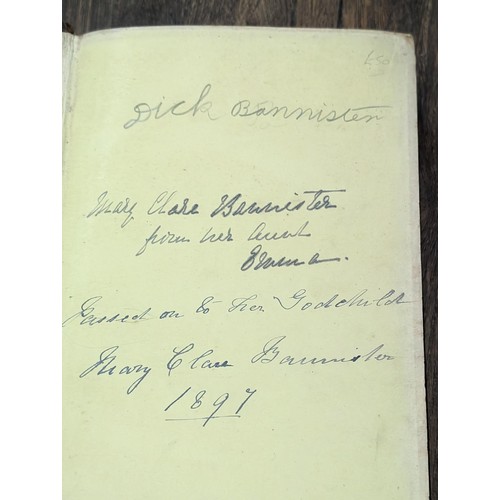 Dick Bannister
Mary Clare Bannister
from her Aunt
Emma.
Passed on to her Godchild
Mary Clare Bannister
1897